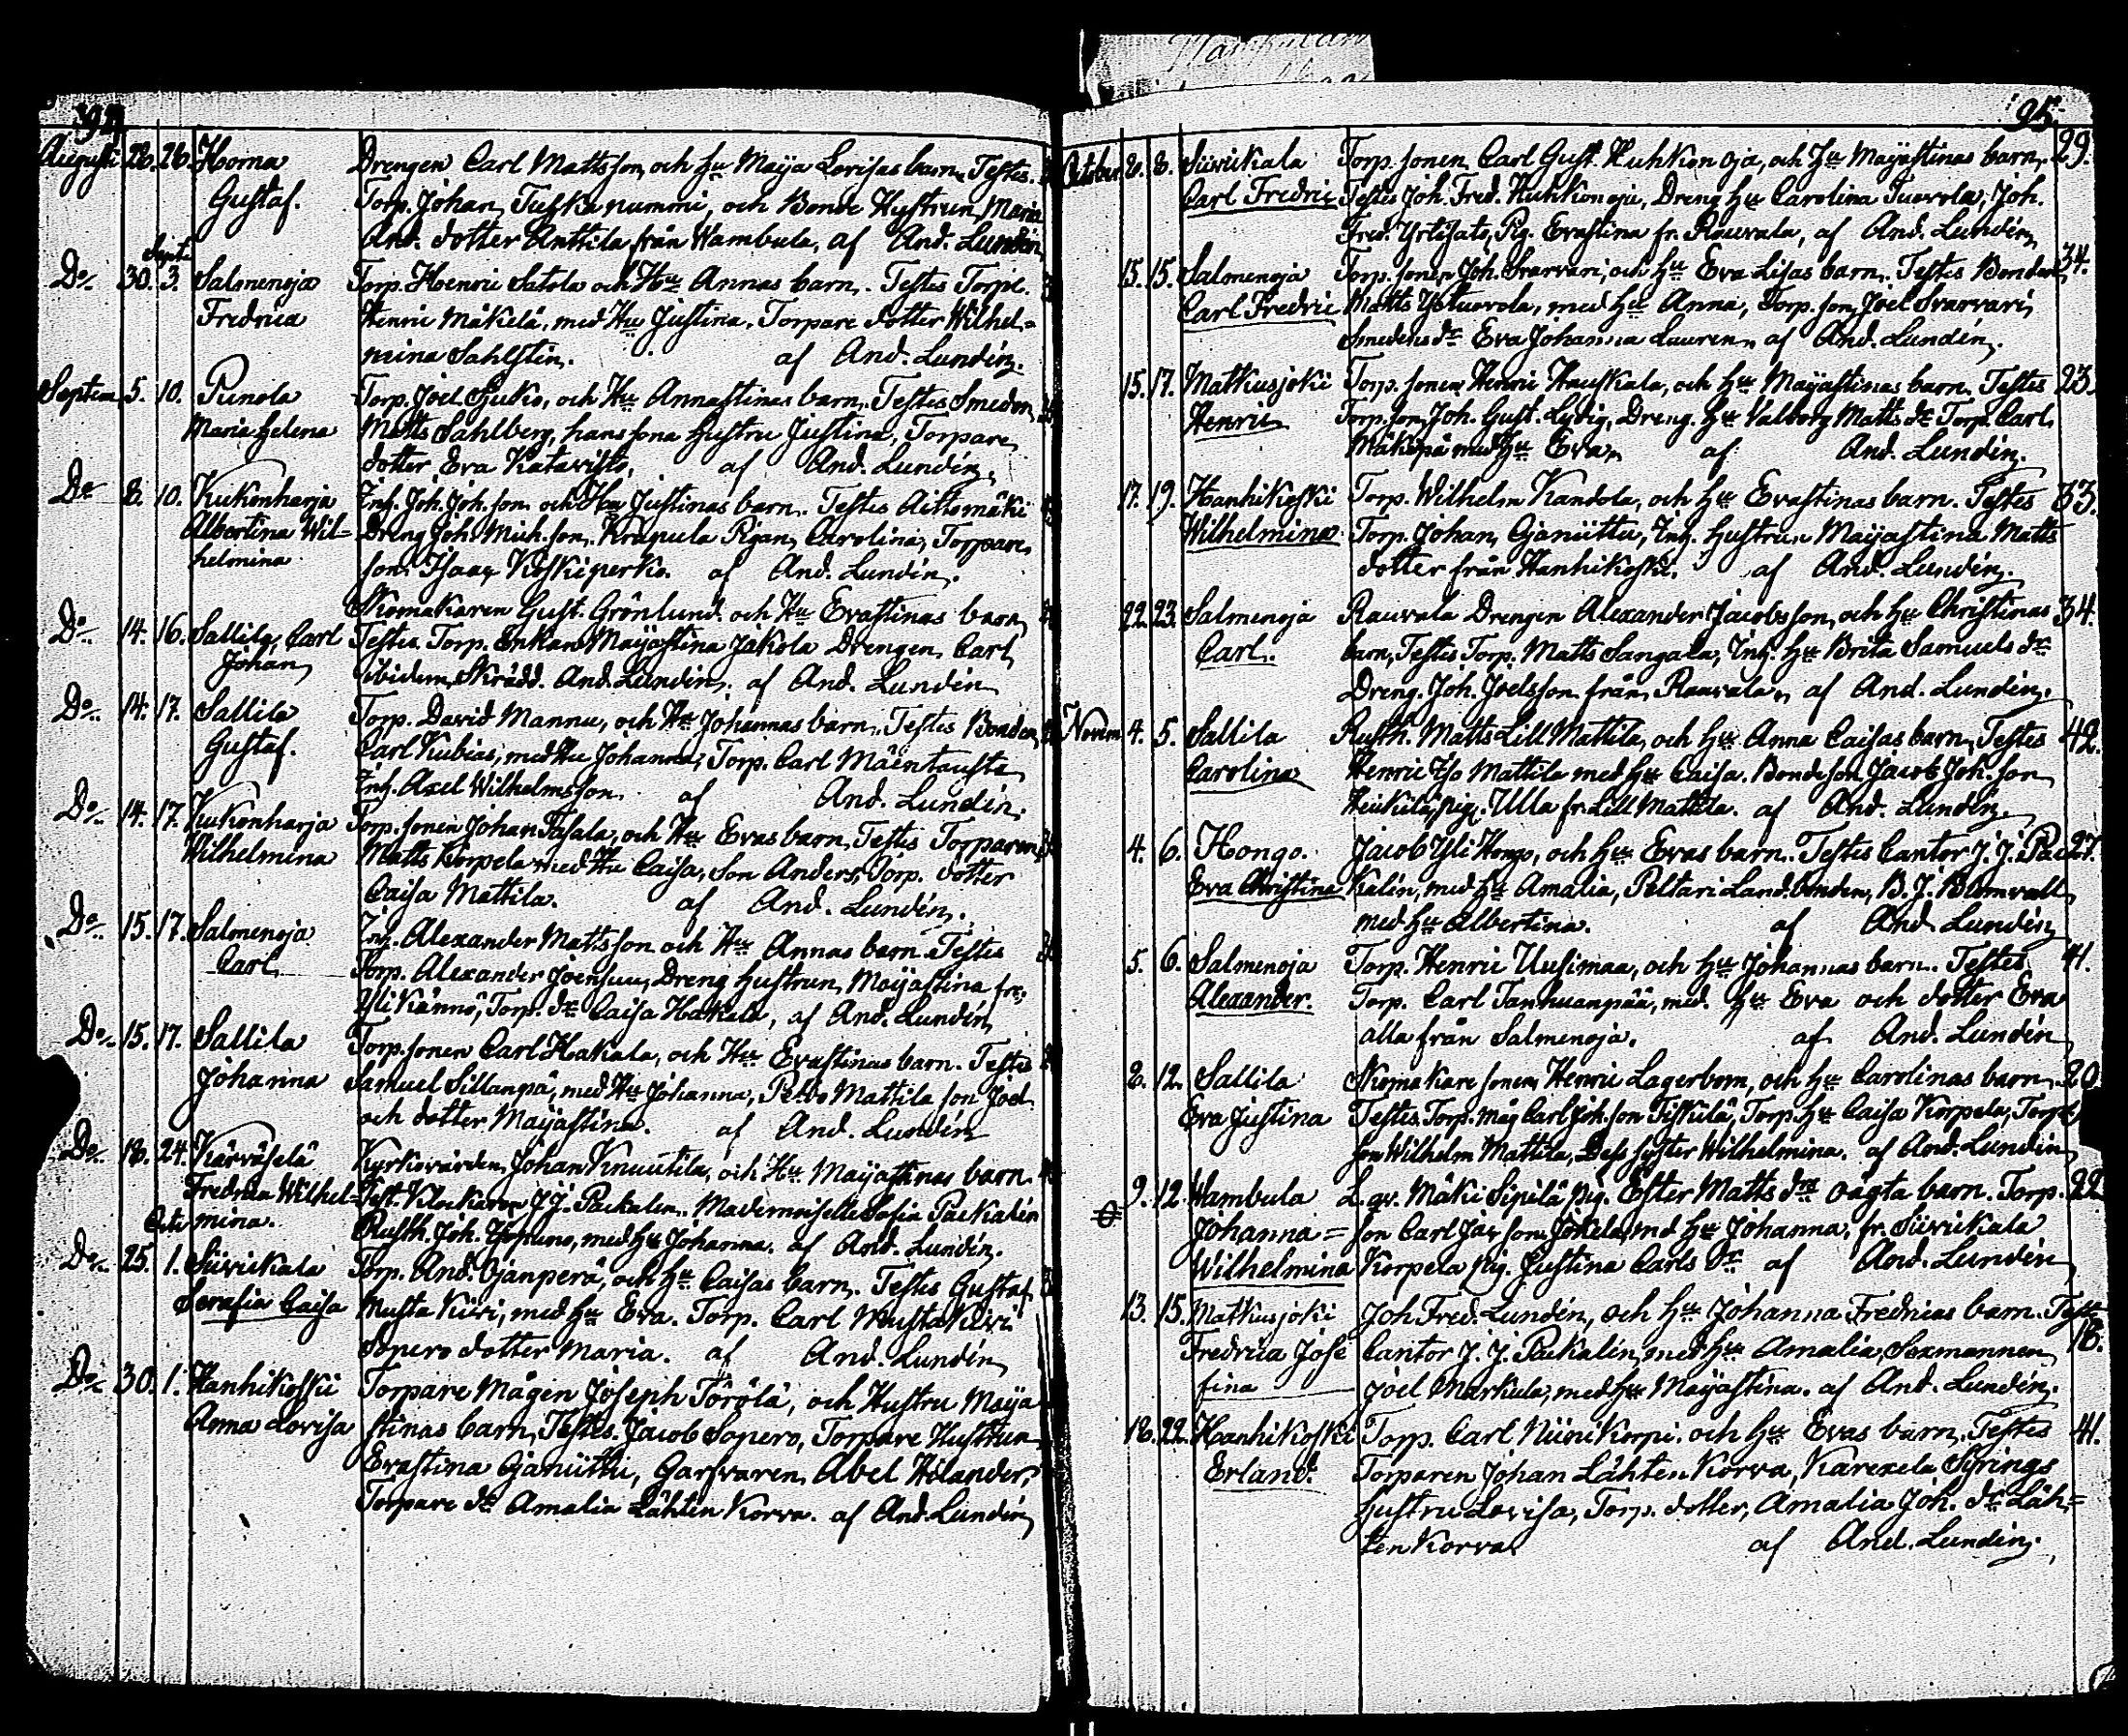 94
Augusti 26. 26. Horna Drengen Carl Mattsson, och Hu Maija Lovisas barn, Testes.
Gustaf. Torp. Johan Tuskanummi, och Bonde Hustrun Maria
And. dotter Anttila från Wambula, af And. Lundén,
Sept.
Do 30. 3. Salmenoja Torp. Henric Satola och Hu Annas barn. Testes Torp.
Fredrica Henric Mäkelä, med Hu Justina. Torpare dotter Wilhel=
mina Sahlstén. af And. Lundén.
Septem 5. 10. Punola Torp. Joel Suko, och Hu Annastinas barn, Testes Smeden
Maria Helena Matts Sahlberg, hans sons Hustru Justina, Torpare
dotter Eva Katavisto, af And. Lundén.
Do 8. 10. Kukonharja Inh. Joh. Joh. son och Hu Justinas barn. Testes Aittomäki
Albertina Wil= Dreng Joh. Mich. son, Krapula Pigan Carolina, Torpare
helmina son Isaac Koskiperko. af And. Lundén.
Skomakaren Gust. Grönlund och Hu Evastinas barn,
Do 14. 16. Sallila, Carl Testes Torp. Enkan Maijastina Jakola Drengen Carl
Johan, ibidem, Skrädd. And. Lundén. af And. Lundén
Do 14. 17. Sallila Torp. David Mannu, och Hu Johannas barn, Testes Bonden
Gustaf. Carl Kubias, med Hu Johanna, Torp. Carl Mäentausta
Inh. Axel Wilhelmsson. af And. Lundén.
Do 14. 17. Kukonharja Torp. sonen Johan Sasala, och Hu Evas barn, Testes Torparen
Wilhelmina Matts Korpela med Hu Caisa, son Anders, Torp. dotter
Caisa Mattila. af And. Lundén.
Do 15. 17. Salmenoja Inh. Alexander Mattsson och Hu Annas barn. Testes
Carl Torp. Alexander Joensuu, Dreng Hustrun Maijastina fr.
Yli Kännö, Torp. dr Caisa Hakala, af And. Lundén,
Do 15. 17. Sallila Torp. sonen Carl Hakala, och Hu Evastinas barn. Testes
Johanna Samuel Sillanpä, med Hu Johanna, Pelto Mattila son Joel
och dotter Maijastina. af And. Lundén
Do 18. 24. Kärväselä Kyrkovärden Johan Knuutila, och Hu Maijastinas barn.
Fredrica Wilhel= Test. Klockaren J. J. Packalen, Mademoiselle Sofia Packalén
Octo mina. Rusth. Joh. Yopuno, med Hu Johanna. af And. Lundén.
Do 25. 1. Suvikala Torp. And. Ojanperä, och Hu Caisas barn. Testes Gustaf
Serafia Caisa Musta Kivi, med Hu Eva. Torp. Carl Musta Kivi
Sopero dotter Maria. af And. Lundén
Do 30. 1. Hanhikoski Torpare Mågen Joseph Törölä, och Hustru Maija
Anna Lovisa stinas barn, Testes Jacob Sopero, Torpare Hustrun
Evastina Ojanüttu, Garfvaren Abel Hilander,
Torpare dr Amalia Lähten Korva. af And. Lundén,
95.
October 6. 8. Suvikala Torp. sonen Carl Gust. Huhkon oja, och Hu Maijastinas barn, 29.
Carl Fredric Testes Joh. Fred. Huhkonoja, Dreng Hu Carolina Tuorola, Joh.
Fred. Yrtisato, Pig. Evastina fr. Rauvala, af And. Lundén,
15. 15. Salmenoja Torp. sonen Joh. Svarvari, och Hu Eva Lisas barn. Testes Bonden 34.
Carl Fredric Matts Ystuorola, med Hu Anna, Torp. son Joel Svarvari,
Smedens dr Eva Johanna Lauren, af And. Lundén.
15. 17. Matkusjoki Torp. sonen Henric Hauskala, och Hu Maijastinas barn, Testes 23.
Henric Torp. son Joh. Gust. Lydig, Dreng. Hu Valborg Matts dr Torp. Carl
Mäkipä med Hu Eva, af And. Lundén.
17. 19. Hanhikoski Torp. Wilhelm Kandola, och Hu Evastinas barn. Testes 33.
Wilhelmina Torp. Johan Ojanüttu, Inh. Hustrun Maijastina Matts
dotter från Hanhikoski. af And. Lundén.
22. 23. Salmenoja Rauvala Drengen Alexander Jacobsson, och Hu Christinas 34.
Carl. barn, Testes Torp. Matts Sangala, Inh. Hu Brita Samuels dr
Dreng. Joh. Joelsson från Rauvala, af And. Lundén.
Novem 4. 5. Sallila Rusth. Matts Lill Mattila, och Hu Anna Caisas barn, Testes 42.
Carolina Henric Iso Mattila med Hu Caisa. Bondeson Jacob Joh. son
Heikilä, pig. Ulla fr. Lill Mattila. af And. Lundén,
4. 6. Hongo. Jacob Yli Hongo, och Hu Evas barn. Testes Cantor J. J. Pac 27.
Eva Christina kalén, med Hu Amalia, Peltari Landbonden, B. J. Blomvall
med Hu Albertina. af And. Lundén
5. 6. Salmenoja Torp. Henric Uusimaa, och Hu Johannas barn. Testes 41.
Alexander. Torp. Carl Tanhuanpää, med Hu Eva och dotter Eva
alla från Salmenoja. af And. Lundén
8. 12. Sallila Skomakare sonen Henric Lagerbom, och Hu Carolinas barn, 20.
Eva Justina Testes. Torp. måg Carl Joh. son Tiskilä, Torp. Hu Caisa Korpela, Torp.
son Wilhelm Mattila, Dess syster Wilhelmina. af And. Lundén
9. 12. Wambula L. qv. Mäki Sipilä pig. Ester Matts dra oägta barn. Torp. 22
Johanna= son Carl Jac. son Jokela med Hu Johanna, fr. Suvikala
Wilhelmina Korpela pig. Justina Carls dr af And. Lundén
13. 15. Matkusjoki Joh. Fred. Lundén, och Hu Johanna Fredricas barn. Test
Fredrica Jose Cantor J. J. Packalén, med Hu Amalia, Sexmannen 18.
fina Joel Markula, med Hu Maijastina. af And. Lundén.
18. 22. Hanhikoski Torp. Carl Niinikorpi och Hu Evas barn, Testes 41.
Erland. Torparen Johan Lähten Korva, Karexela Syrings
Hustru Lovisa, Torp. dotter, Amalia Joh. dr Läh=
ten Korva. af And. Lundén.